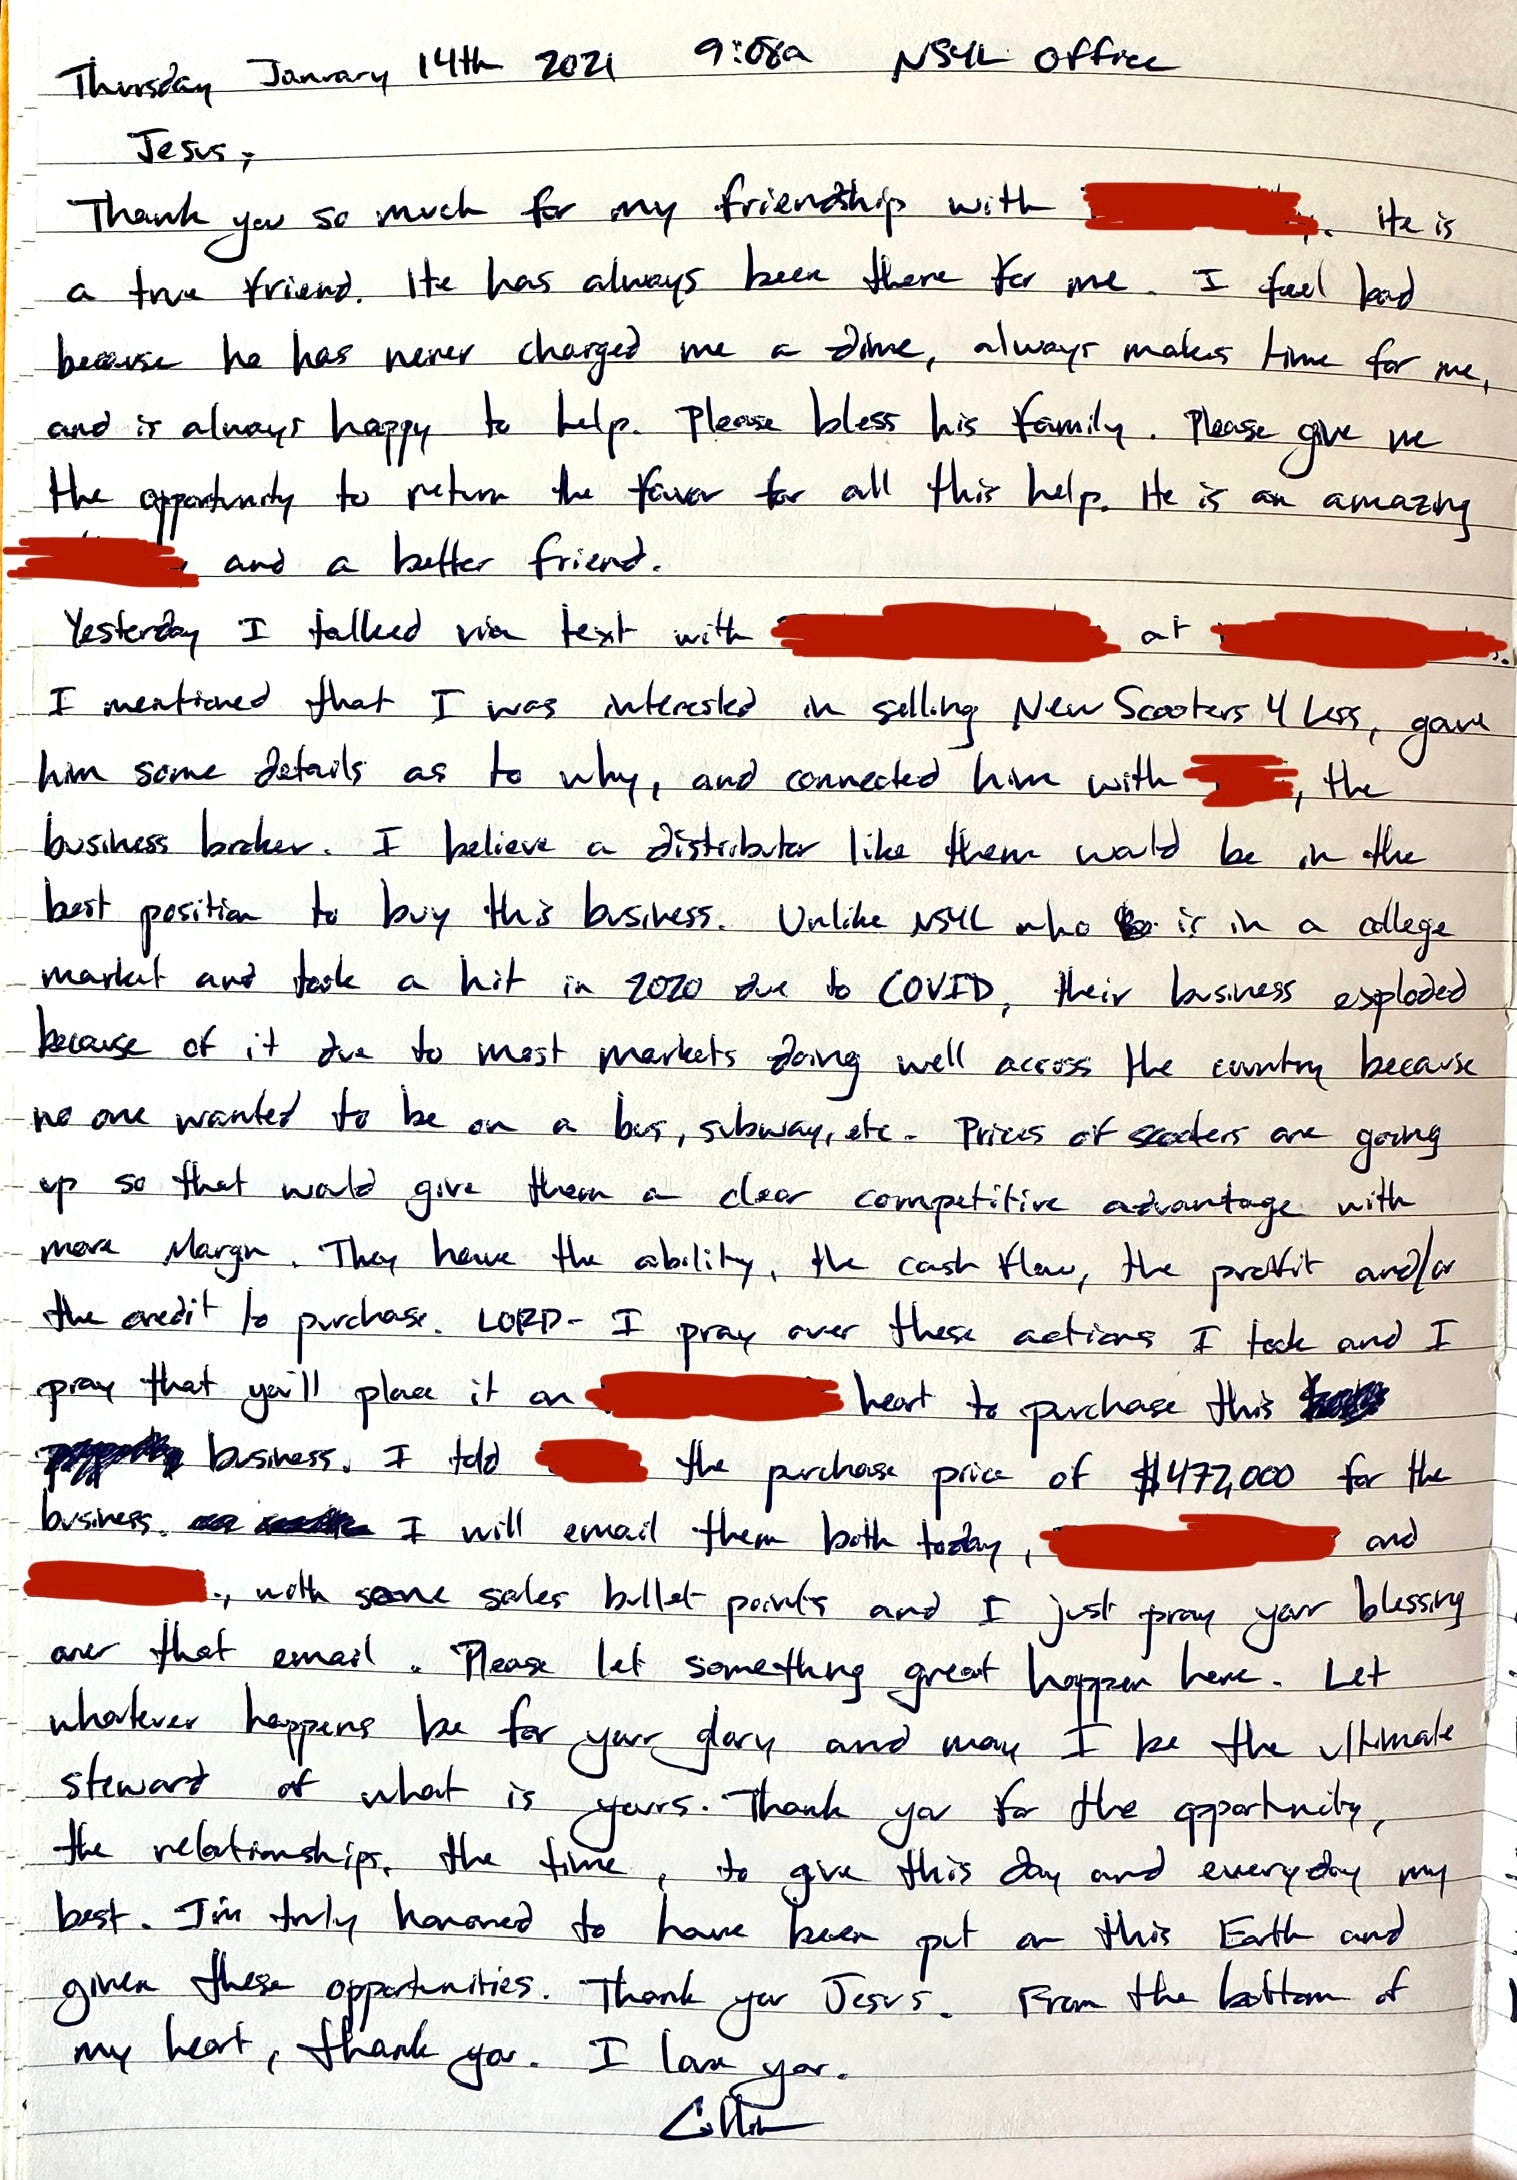 Thursday January 14th 2021 9:08a NS4L Office
Jesus,
Thank you so much for my friendship with . He is
a true friend. He has always been there for me. I feel bad
because he has never charged me a dime, always makes time for me,
and is always happy to help. Please bless his family. Please give me
the opportunity to return the favor for all this help. He is an amazing
, and a better friend.
Yesterday I talked via text with at .
I mentioned that I was interested in selling New Scooters 4 Less, gave
him some details as to why, and connected him with , the
business broker. I believe a distributor like them would be in the
best position to buy this business. Unlike NS4L who is in a college
market and took a hit in 2020 due to COVID, their business exploded
because of it due to most markets doing well across the country because
no one wanted to be on a bus, subway, etc. Prices of scooters are going
up so that would give them a clear competitive advantage with
more Margin. They have the ability, the cash flow, the profit and/or
the credit to purchase. LORD- I pray over these actions I took and I
pray that you'll place it on heart to purchase this
business. I told the purchase price of $472,000 for the
business. I will email them both today, and
, with some sales bullet points and I just pray your blessing
over that email. Please let something great happen here. Let
whatever happens be for your glory and may I be the ultimate
steward of what is yours. Thank you for the opportunity,
the relationships, the time, to give this day and everyday my
best. I'm truly honored to have been put on this Earth and
given these opportunities. Thank you Jesus. From the bottom of
my heart, thank you. I love you.
Collin